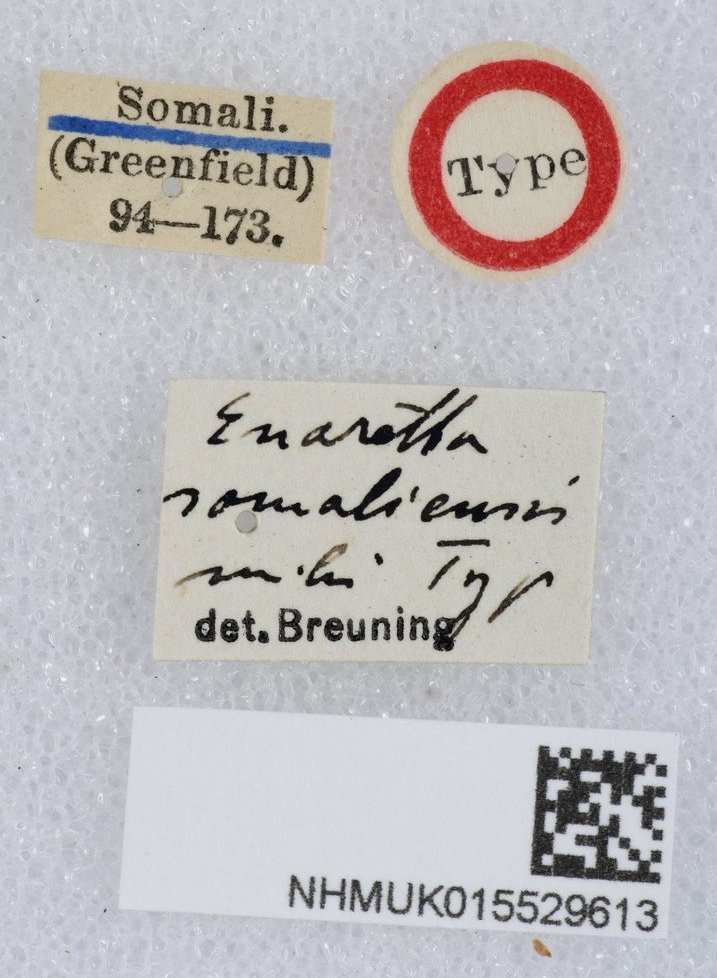 Somali.
(Greenfield)
94—173.
Type
Enaretta
somaliensis
mihi Typ
det. Breuning
NHMUK015529613